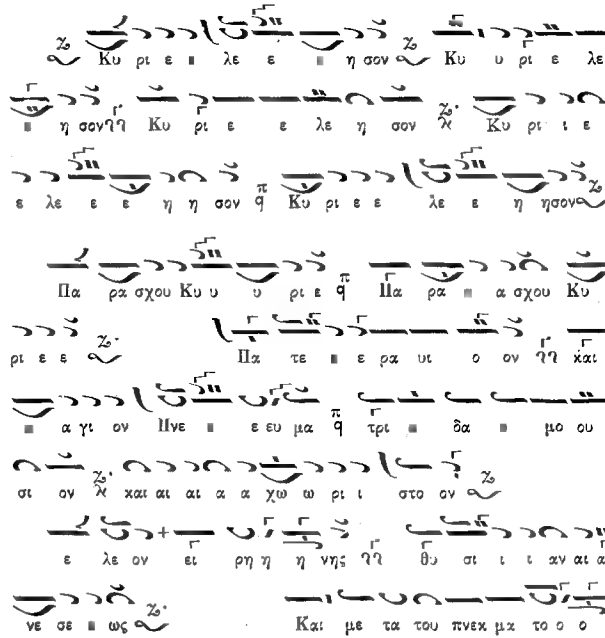 Κυ ρι ε λε ε η σον Κυ υ ρι ε λε
η σον Κυ ρι ε ε λε η σον Κυ ρι ι ε
ε λε ε ε η η σον π q Κυ ρι ε ε λε ε η η σον
Πα ρα σχου Κυ υ υ ρι ε π q Πα ρα α σχου Κυ
ρι ε ε Πα τε ε ρα υι ο ον και
α γι ον Πνε ε ευ μα π q τρι δα μο ου
σι ον και αι αι α α χω ω ρι ι στο ον
ε λε ον ει ρη η η νης θυ σι ι ι αν αι α
νε σε ως Και με τα του πνεκ μα το ο ο